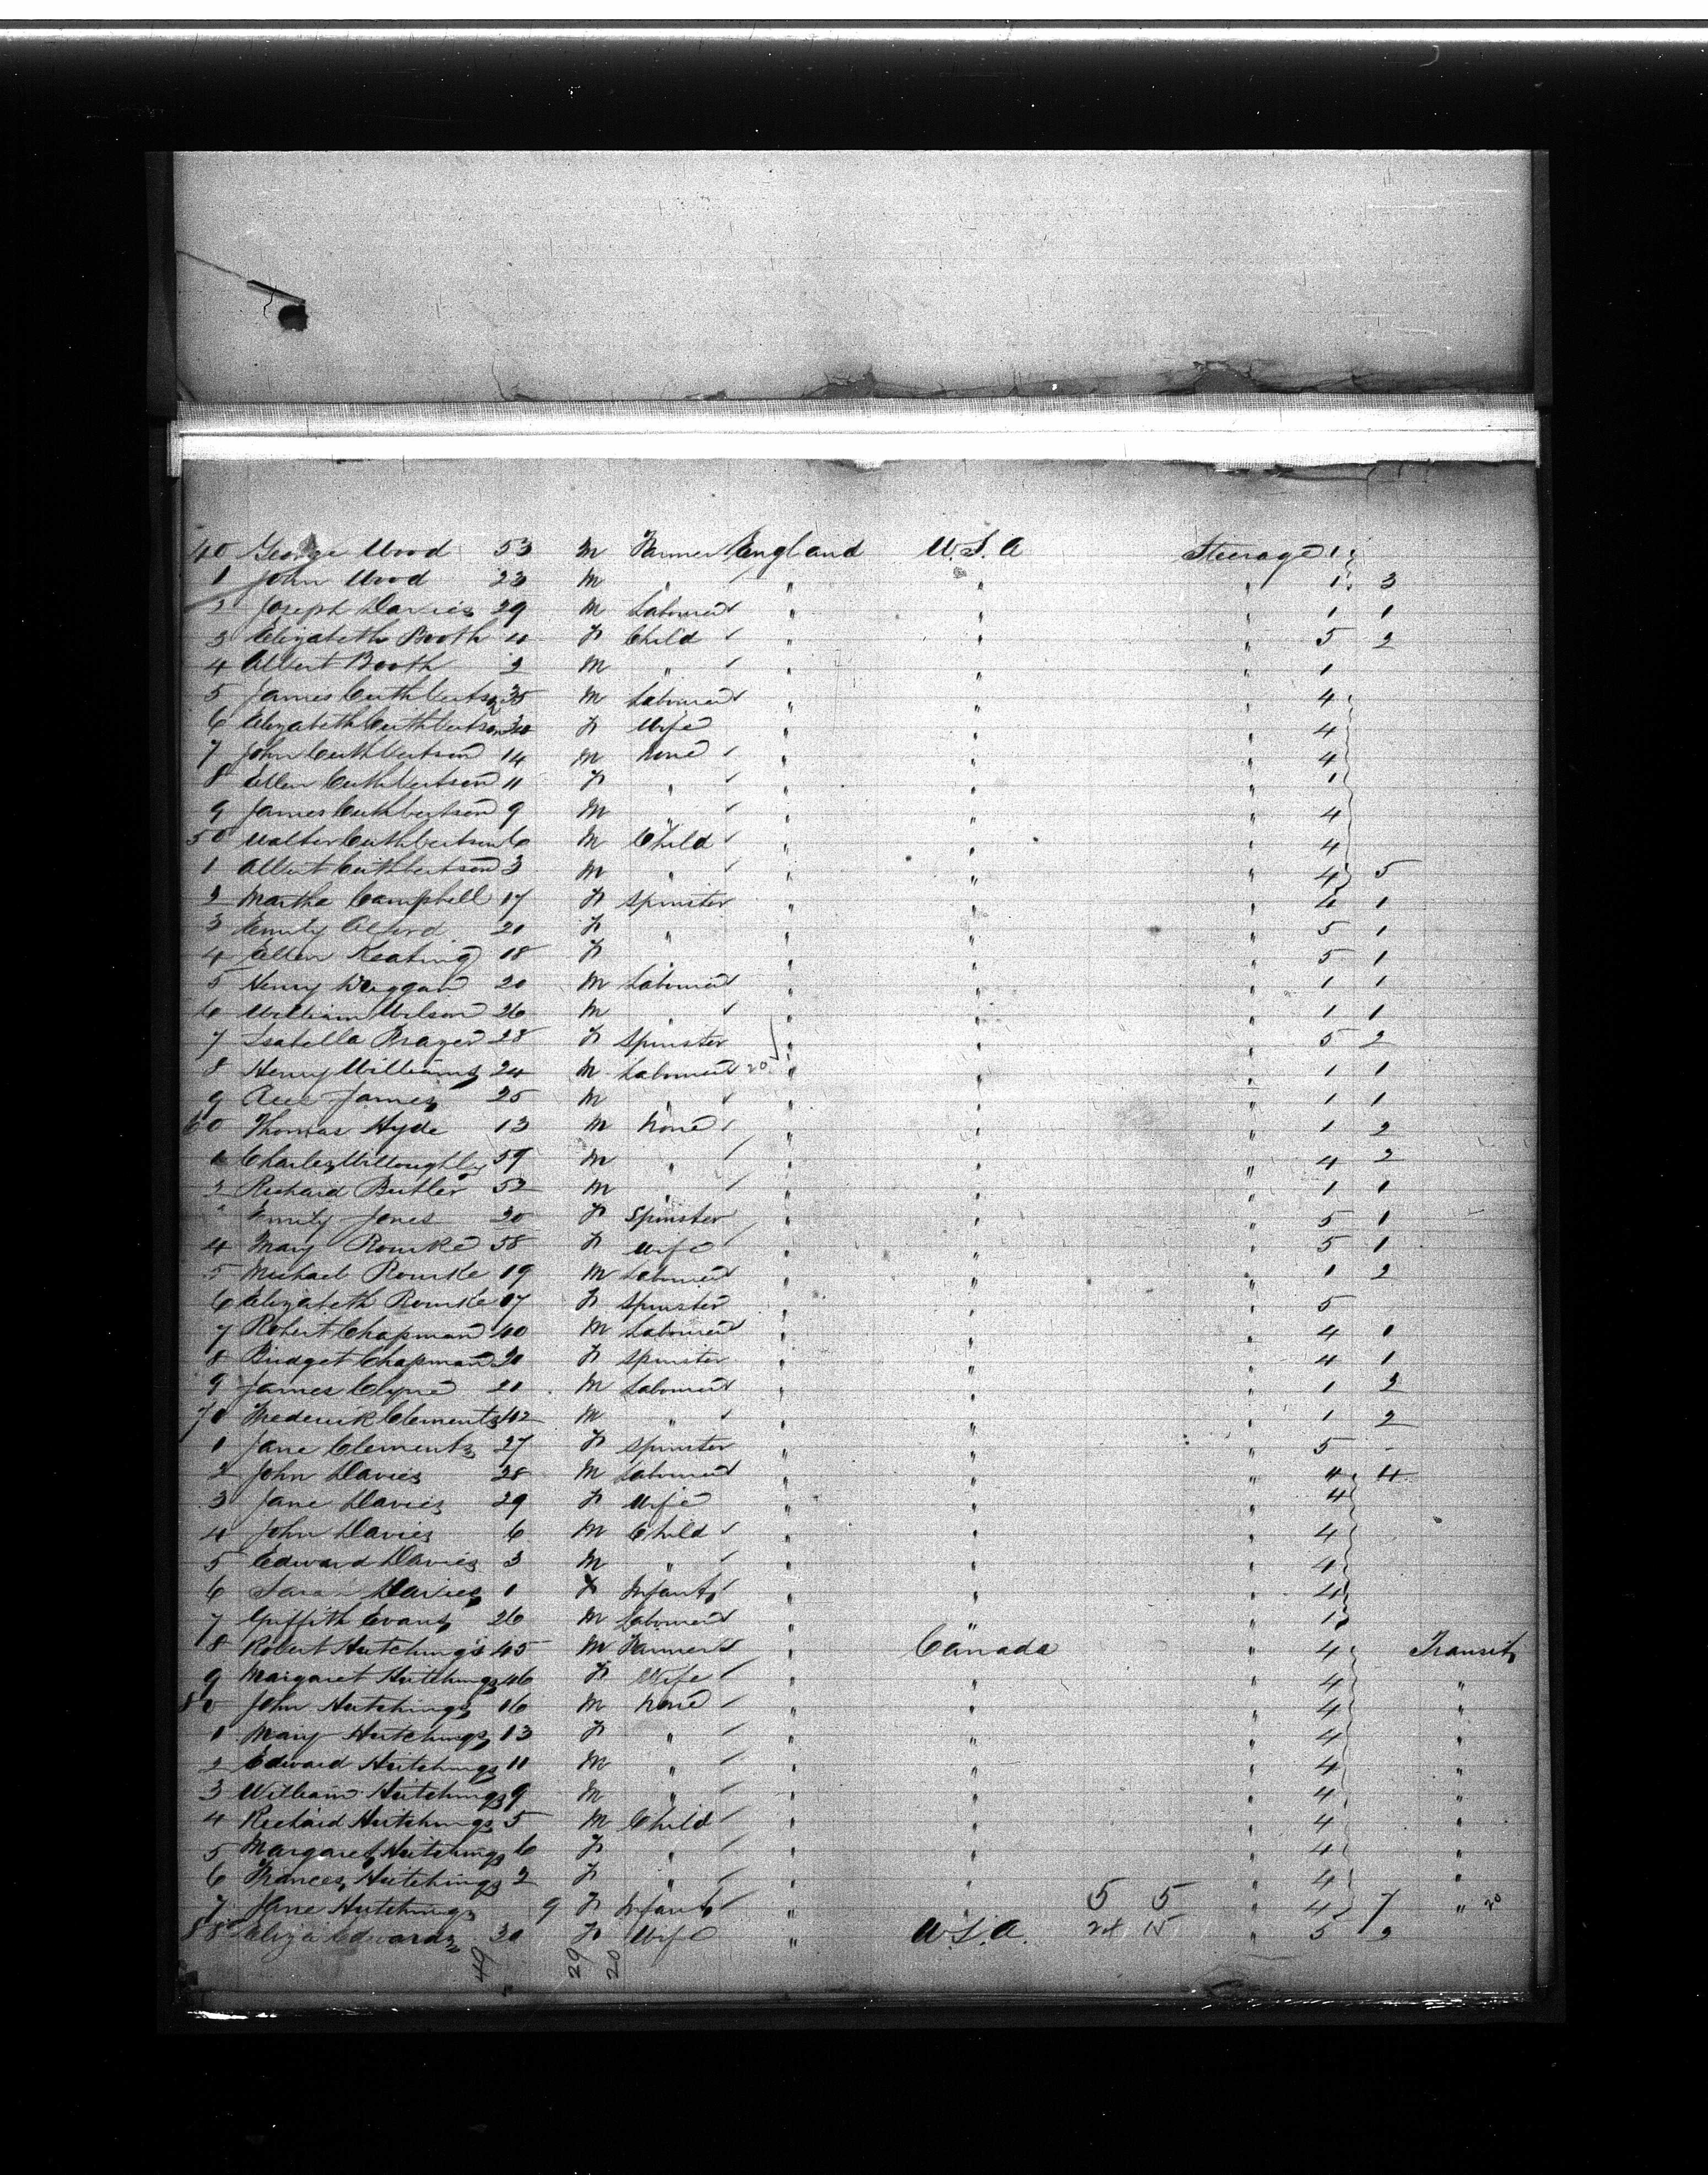 40 George Wood 53 M Farmer England U.S.A Steerage 1
1 John Wood 23 M " " " " 1 3
2 Joseph Davies 29 M Labourer " " " 1 1
3 Elizabeth Booth 4 F Child " " " 5 2
4 Albert Booth 2 M " " " " 1
5 James Cuthbertson 35 M Labourer " " " 4
6 Elizabeth Cuthbertson F Wife " " " 4
7 John Cuthbertson 14 M None " " " 4
8 Ellen Cuthbertson 11 F " " " " 1
9 James Cuthbertson 9 M " " " " 4
50 Walter Cuthbertson 6 M Child " " " 4
1 Albert Cuthbertson 3 M " " " " 4 5
2 Martha Campbell 17 F Spinster " " " 4 1
3 Emily Alford 21 F " " " " 5 1
4 Ellen Keating 18 F " " " " 5 1
5 Henry Duggan 20 M Labourer " " " 1 1
6 William Wilson 26 M " " " " 1 1
7 Isabella 28 F Spinster " " " 5 2
8 Henry Williams 24 M Labourer 20 " " " 1 1
9 James 25 M " " " " 1 1
60 Thomas Hyde 13 M None " " " 1 2
1 Charles Willoughby 59 M " " " " 4 2
2 Richard Butler 52 M " " " " 1 1
" Emily Jones 20 F Spinster " " " 5 1
4 Mary Rourke 58 F Wife " " " 5 1
5 Michael Rourke 19 M Labourer " " " 1 2
6 Elizabeth Rourke 17 F Spinster " " " 5
7 Robert Chapman 40 M Labourer " " " 4 1
8 Bridget Chapman F Spinster " " " 4 1
9 James Clyne 21 M Labourer " " " 1 2
70 Frederick Clements 42 M " " " " 1 2
1 Jane Clements 27 F Spinster " " " 5 -
2 John Davies 28 M Labourer " " " 4 4
3 Jane Davies 29 F Wife " " " 4
4 John Davies 6 M Child " " " 4
5 Edward Davies 3 M " " " " 4
6 Sarah Davies 1 F Infant " " " 4
7 Griffith Evans 26 M Labourer " " " 1
8 Robert Hutchings 45 M Farmer " Canada " 4 Transit
9 Margaret Hutchings 46 F Wife " " " 4 "
80 John Hutchings 16 M None " " " 4 "
1 Mary Hutchings 13 F " " " " 4 "
2 Edward Hutchings 11 M " " " " 4 "
3 William Hutchings 9 M " " " " 4 "
4 Richard Hutchings 5 M Child " " " 4 "
5 Margaret Hutchings 6 F " " " " 4 "
6 Frances Hutchings 2 F " " " " 4 "
7 Jane Hutchings 9 F Infant " " 5 5 " 4 7 " 20
88 Eliza Edwards 30 F Wife " U.S.A. 15 " 5 2
49 29 20